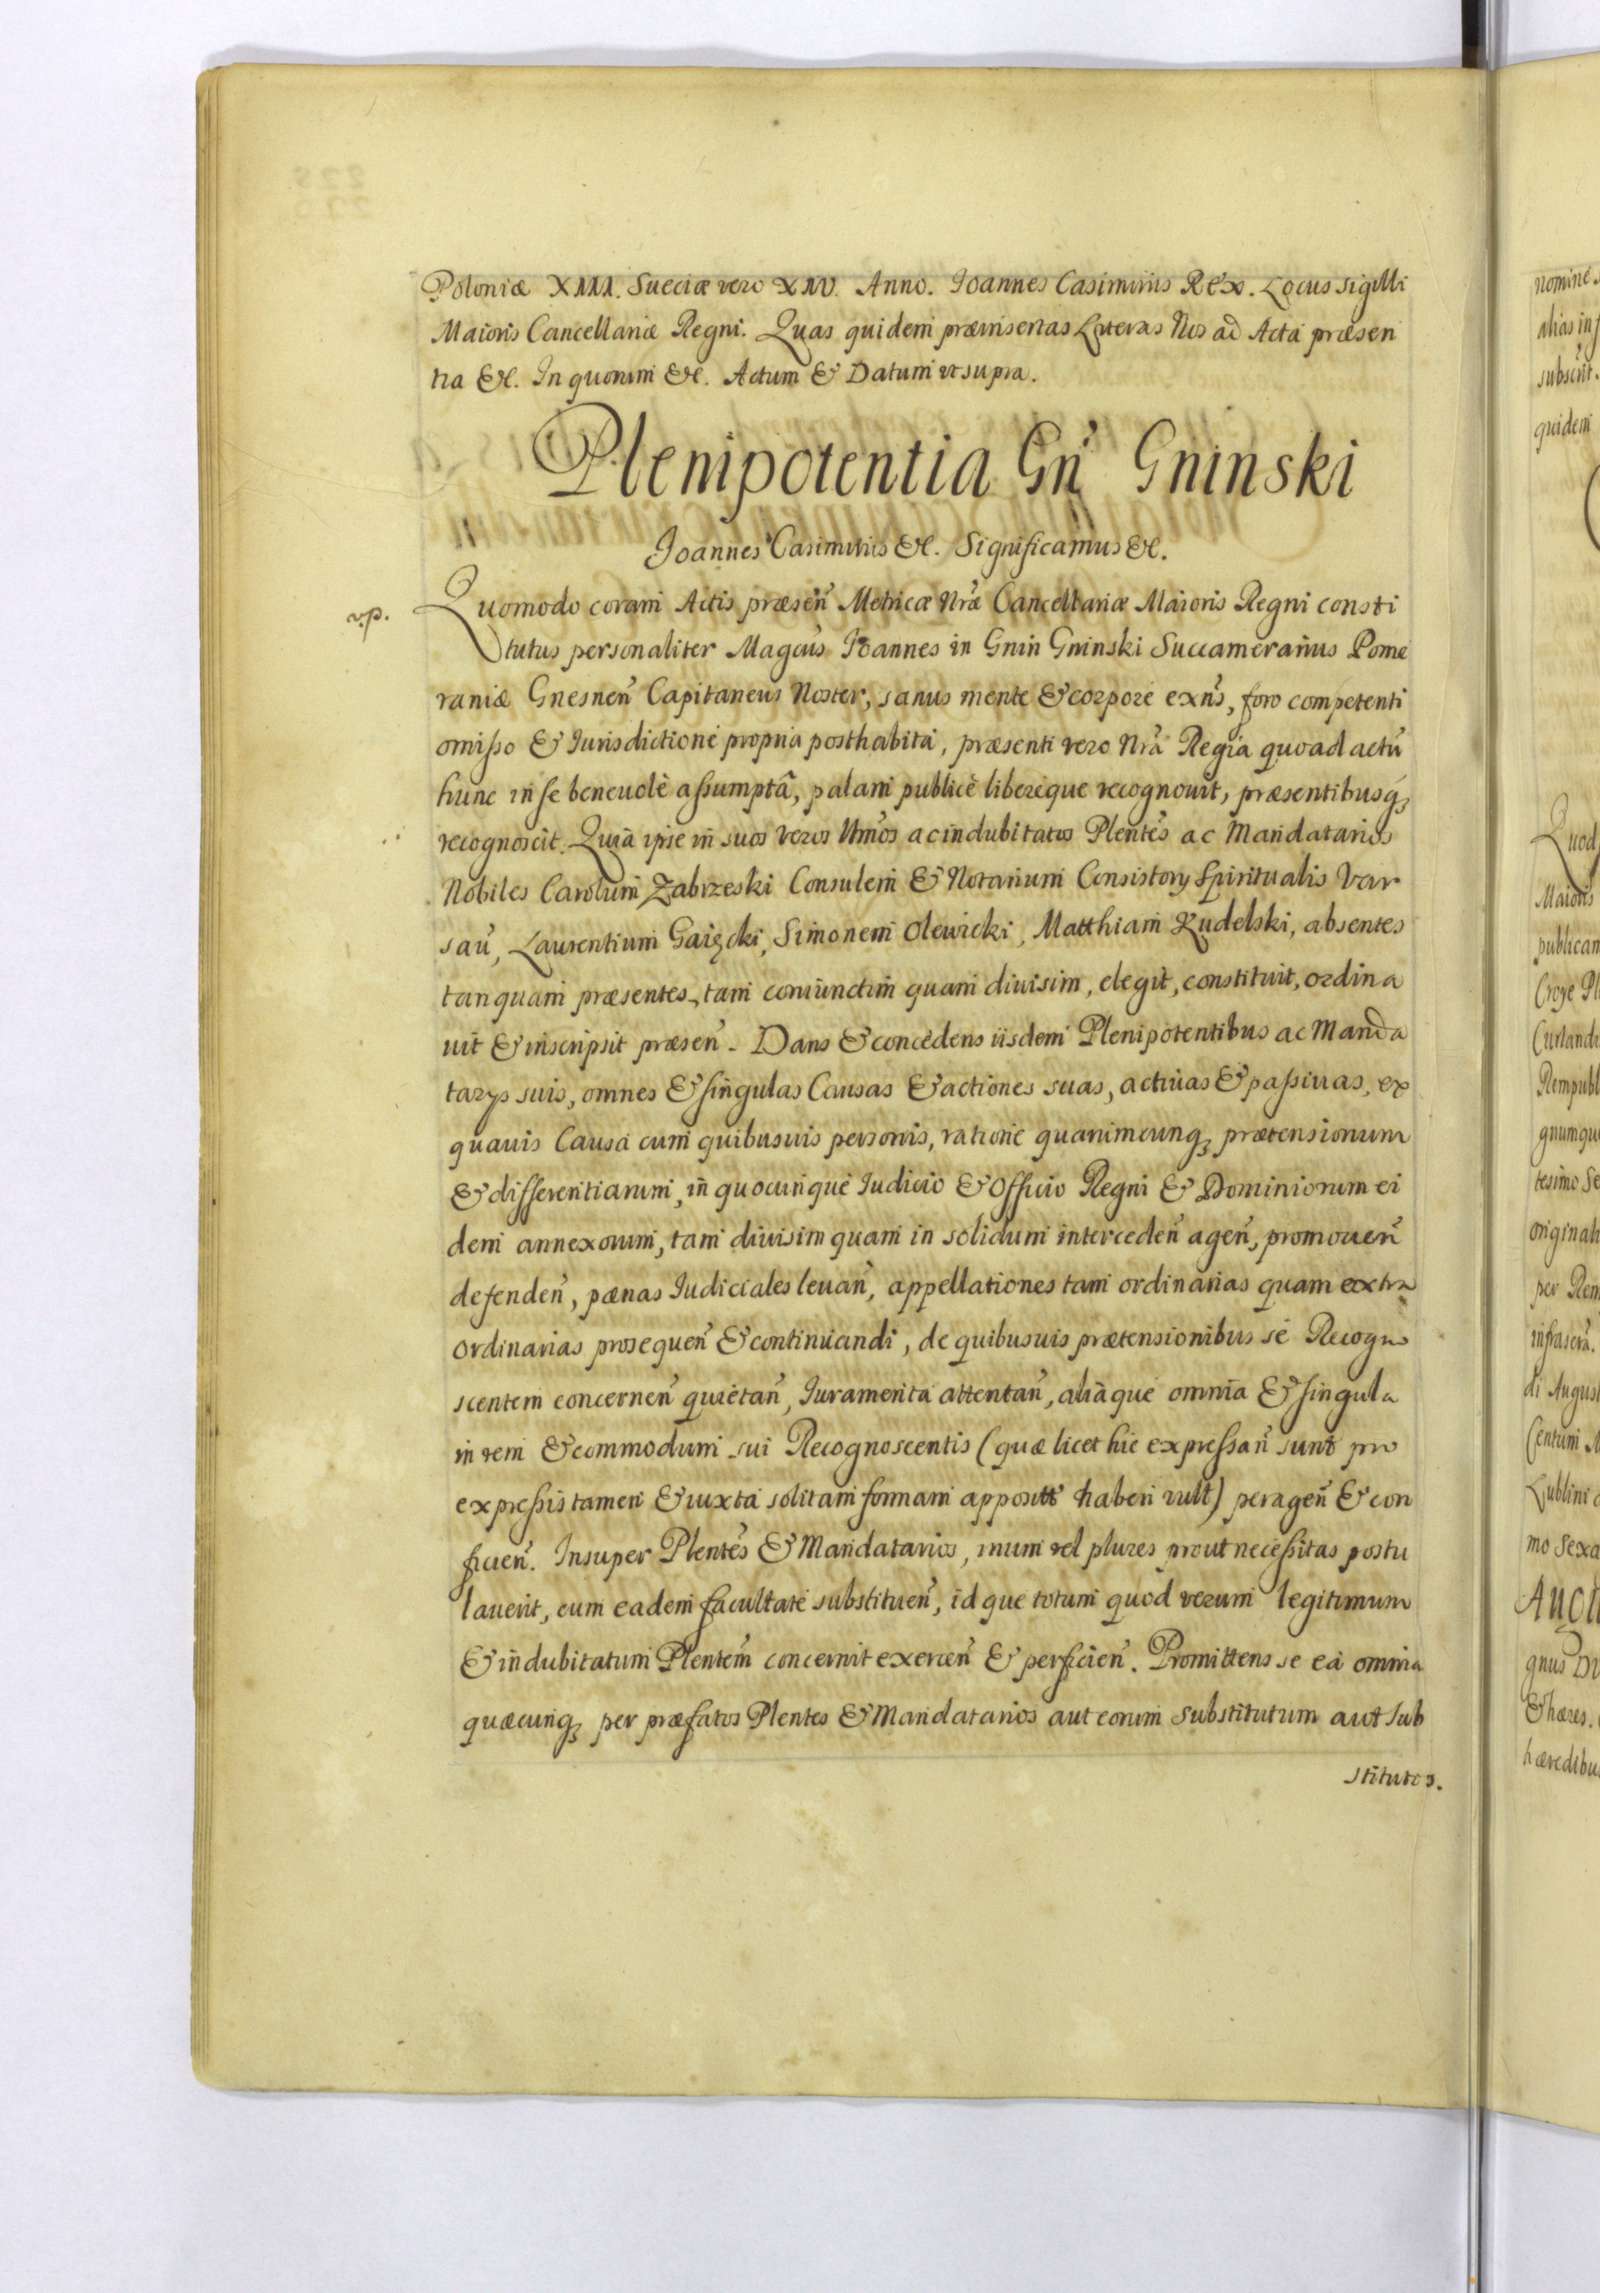 Poloniæ XIII. Sueciæ vero XIV. Anno. Joannes Casimirus Rex. Locus sigilli
Maioris Cancellariæ Regni. Quas quidem præinsertas Literas Nos ad Acta præsen
tia &c. In quorum &c. Actum & Datum ut supra.
Plenipotentia Gñ Gninski
Joannes Casimirus &c. Significamus &c.
v.p.
Quomodo coram Actis præseñ Metricæ Nræ Cancellariæ Maioris Regni consti
tutus personaliter Magcus Joannes in Gnin Gninski Succamerarius Pome
raniæ Gnesneñ Capitaneus Noster, sanus mente & corpore exñs, foro competenti
omisso & Jurisdictione propria posthabita, præsenti vero Nrã Regia quoad actũ
hunc in se beneuolè assumptâ, palam publicè liberèque recognouit, præsentibusq;
recognoscit. Quia ipse in suos veros ac indubitatos Plentes ac Mandatarios
Nobiles Carolum Zabrzeski Consulem & Notarium Consistorij Spiritualis Var
sau, Laurentium Simonem Olewicki, Matthiam Rudelski, absentes
tanquam præsentes, tam coniunctim quam diuisim, elegit, constituit, ordina
uit & inscripsit præseñ. Dans & concedens iisdem Plenipotentibus ac Manda
tarijs suis, omnes & singulas Causas & actiones suas, actiuas & passiuas, ex
quauis Causa cum quibusuis personis, ratione quarumcunq; prætensionum
& differentiarum, in quocunque Iudicio & Officio Regni & Dominiorum ei
dem annexorum, tam diuisim quam in solidum intercedeñ ageñ, promoueñ
defendeñ, pænas Iudiciales leuañ, appellationes tam ordinarias quam extra
ordinarias prosequeñ & continuandi, de quibusuis prætensionibus se Recogno
scentem concerneñ quietañ, Iuramenta attentañ, aliaque omnia & singula
in rem & commodum sui Recognoscentis (quæ licet hic expressañ sunt pro
expressis tamen & iuxta solitam formam apposit haberi vult) perageñ & con
ficieñ. Insuper Plentes & Mandatarios, unum vel plures prout necessitas postu
lauerit, cum eadem facultate substitueñ, idque totum quod verum legitimum
& indubitatum Plentem concernit exerceñ & perficieñ. Promittens se ea omnia
quæcunq; per præfatos Plentes & Mandatarios aut eorum substitutum aut sub
stitutos.